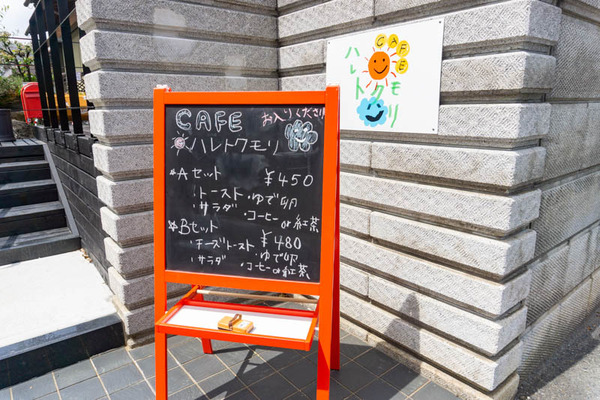 CAFE
ハレトクモリ
CAFE お入りください
ハレトクモリ
*Aセット ¥450
・トースト・ゆで卵
・サラダ ・コーヒーor紅茶
*Bセット ¥480
・チーズトースト・ゆで卵
・サラダ ・コーヒーor紅茶